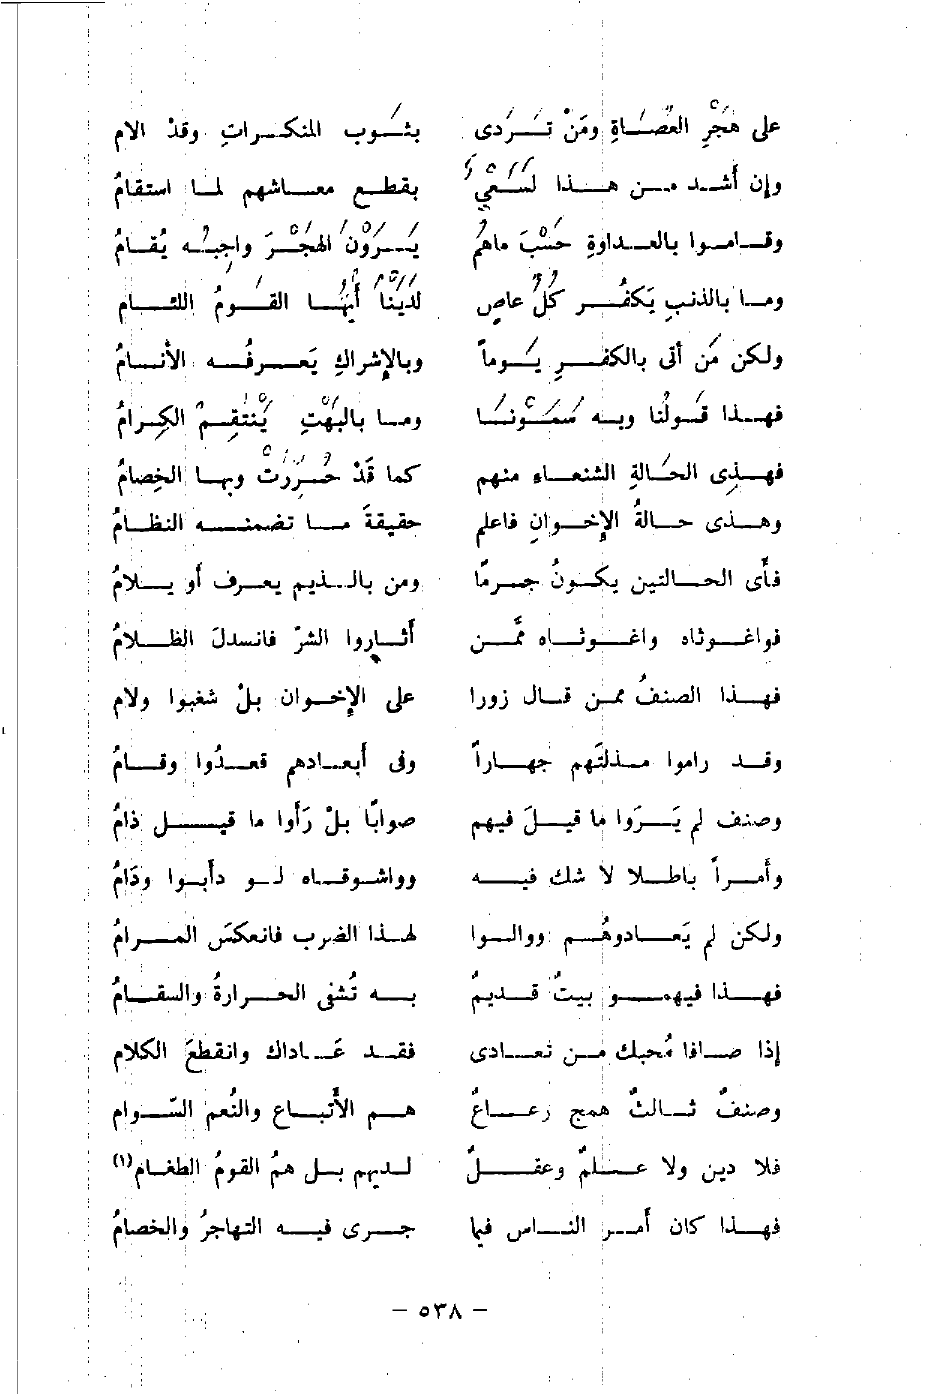 على هَجْرِ العُصَاةِ ومَنْ تَرَدى بثَوب المنكراتِ وقدْ الام
وإن أشد من هذا لسَعْي بقطع معاشهم لما استقامُ
وقاموا بالعداوةِ حَسْبَ ماهمُ يَرَوْن الهَجْرَ واجبُه يُقامُ
وما بالذنبِ يَكفُر كُلُ عاصٍ لَدَيْنَا أيُّهَا القَومُ اللئام
ولكن مَن أتى بالكفرِ يَوماً وبالإشراكِ يَعرفُه الأنامُ
فهذا قَولُنا وبه سَمَوْنَا وما بالبَهْتِ يَنْتَقِم الكِرامُ
فهذِى الحَالةِ الشنعاء منهم كما قَدْ حُرِرَتْ وبها الخِصامُ
وهذى حالةُ الإخوانِ فاعلم حقيقةَ ما تضمنه النظامُ
فأى الحالتين يكونُ جرمًا ومن بالذيم يعرف أو يلامُ
فواغوثاه واغوثاه ممَّن أثاروا الشرّ فانسدلَ الظلامُ
فهذا الصنفُ ممن قال زورا على الإخوان بلْ شغبوا ولام
وقد راموا مذلتَهم جهاراً وفى أبعادهم قعدُوا وقامُ
وصنف لم يَرَوا ما قيلَ فيهم صوابًا بلْ رَأوا ما قيل ذامُ
وأمراً باطلا لا شك فيه وواشوقاه لو دأبوا ودَامُ
ولكن لم يَعادوهُم ووالوا لهذا الضرب فانعكسَ المرامُ
فهذا فيهمو بيتُ قديمُ به تُشفى الحرارةُ والسقامُ
إذا صافا مُحبك من تعادى فقد عَاداك وانقطعَ الكلام
وصنفُ ثالثُ همج رعاعُ هم الأتباع والنُعم السّوام
فلا دين ولا علمُ وعقلُ لديهم بل همُ القومُ الطغام(١)
فهذا كان أمر الناس فيما جرى فيه التهاجرُ والخصامُ
– ٥٣٨ –